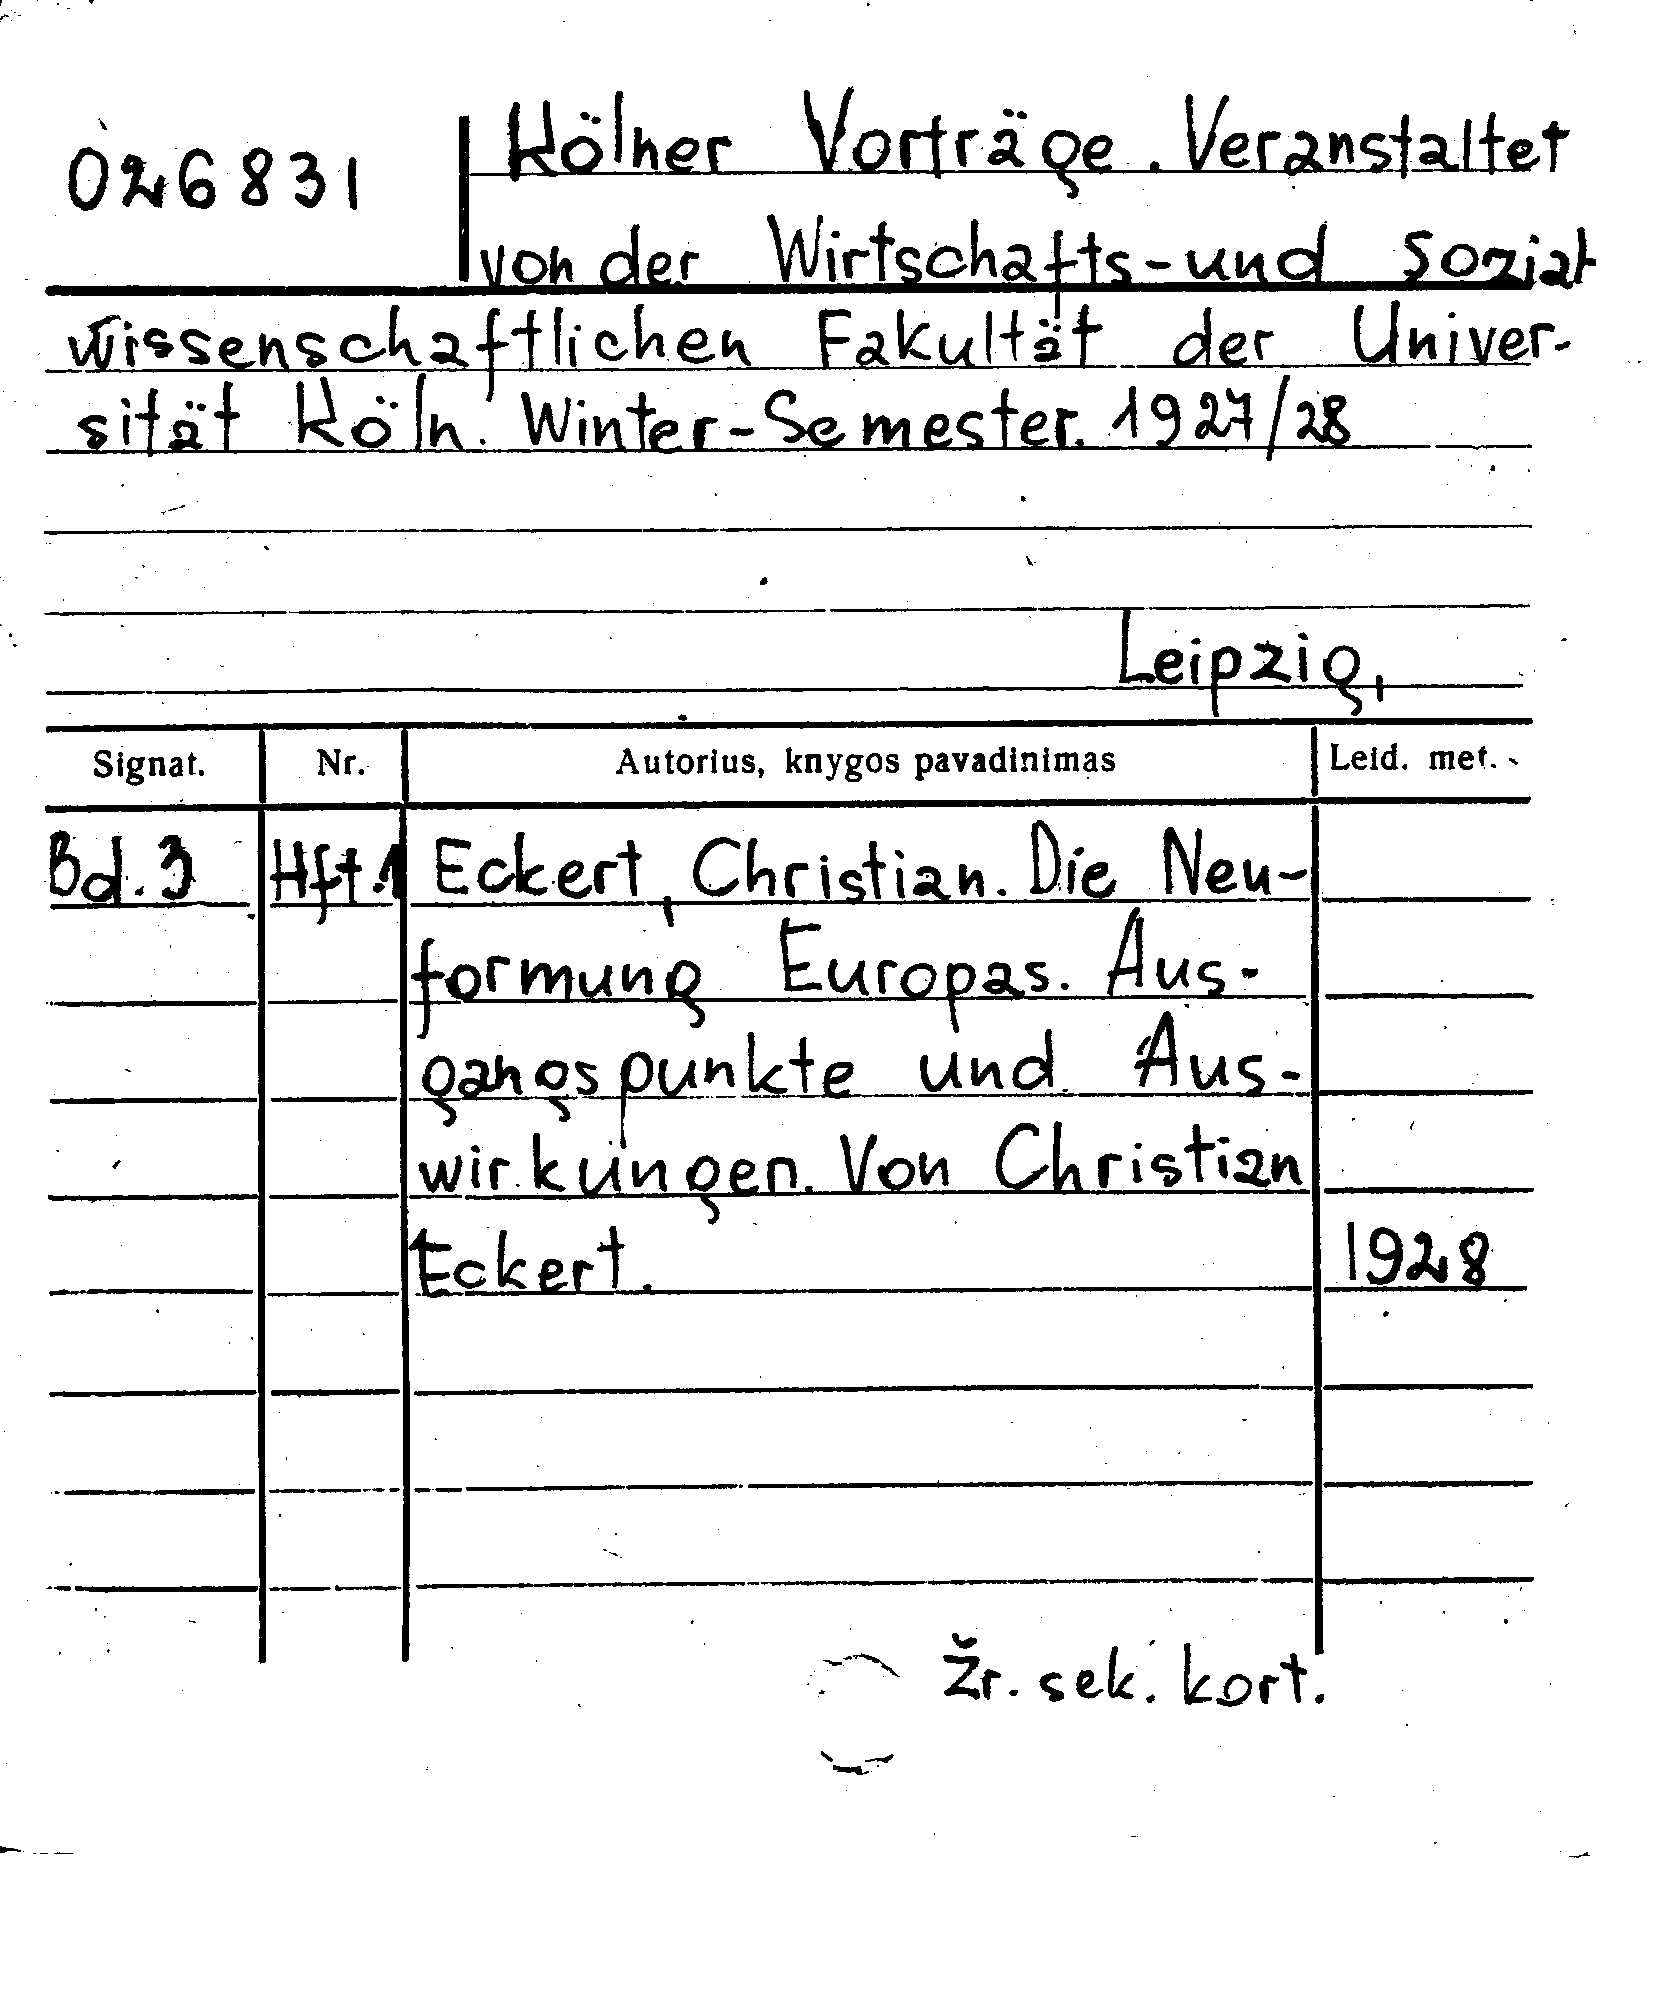 026831
Kölner Vorträge. Veranstaltet
von der Wirtschafts-und Sozial
wissenschaftlichen Fakultät der Univer-
sität Köln. Winter-Semester. 1927/28
Leipzig,
Signat. Nr. Autorius, knygos pavadinimas Leid. met.
Bd.3 Hft.1 Eckert, Christian. Die Neu-
formung Europas. Aus-
gangspunkte und Aus-
wirkungen. Von Christian
Eckert. 1928
Žr. sek. kort.